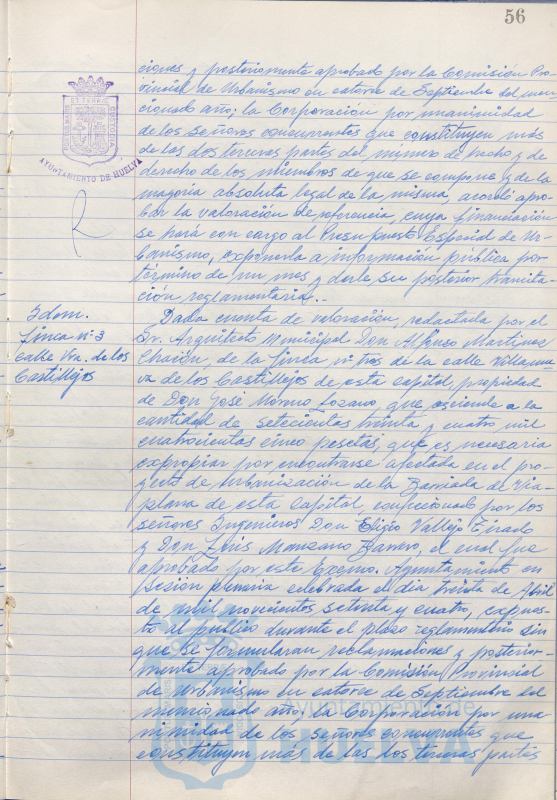 56
ciones y posteriormente aprobado por la Comisión Pro-
vincial de Urbanismo en catorce de Septiembre del men-
cionado año; la Corporación por unanimidad
de los señores concurrentes que constituyen más
de las dos terceras partes del número de hecho y de
derecho de los miembros de que se compone y de la
mayoría absoluta legal de la misma, acordó apro-
bar la valoración de referencia, cuya financiación
se hará con cargo al Presupuesto Especial de Ur-
banismo, exponerla a información pública por
término de un mes y darle su posterior tramita-
ción reglamentaria.-
AYUNTAMIENTO DE HUELVA
Idem.
finca nº 3
calle Vva. de los
Castillejos
Dada cuenta de valoración, redactada por el
Sr. Arquitecto Municipal Don Alfonso Martínez
Chacón, de la finca nº tres de la calle Villanue-
va de los Castillejos de esta capital, propiedad
de Don José Moreno Lozano, que asciende a la
cantidad de setecientas treinta y cuatro mil
cuatrocientas cinco pesetas, que es necesaria
expropiar por encontrarse afectada en el pro-
yecto de Urbanización de la Barriada del Via-
plana de esta capital, confeccionado por los
señores Ingenieros Don Eligio Vallejo Tirado
y Don Luis Manzano Barrero, el cual fue
aprobado por este Excmo. Ayuntamiento en
sesión plenaria celebrada el día treinta de Abril
de mil novecientos setenta y cuatro, expues-
to al público durante el plazo reglamentario sin
que se formularan reclamaciones y posterior-
mente aprobado por la Comisión Provincial
de Urbanismo en catorce de Septiembre del
mencionado año; la Corporación por una-
nimidad de los señores concurrentes que
constituyen más de las dos terceras partes
Ayuntamiento de
HUELVA